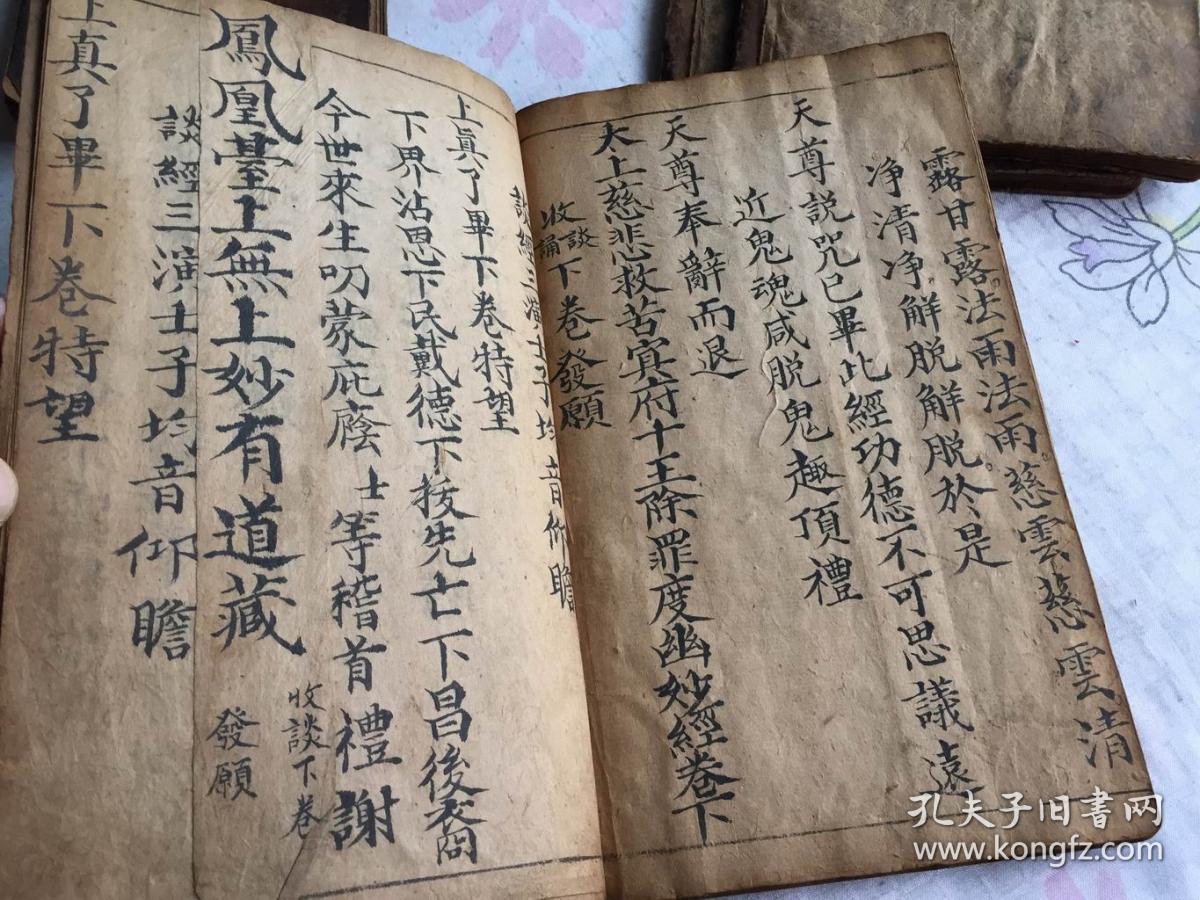 露甘露法雨法雨慈雲慈雲清
净清净解脱解脱於是
天尊説咒已畢此經功德不可思議遠
近鬼魂咸脱鬼趣頂禮
天尊奉辭而退
太上慈悲救苦冥府十王除罪度幽妙經卷下
收談誦下卷發願
談經三演士子均音仰瞻
上真了畢下卷特望
下界沾恩下民戴德下拔先亡下昌後裔
今世來生叨蒙庇廕士等稽首禮謝
收談下卷
鳳凰臺上無上妙有道藏
發願
談經三演士子均音仰瞻
上真了畢下卷特望
孔夫子旧书网
www.kongfz.com